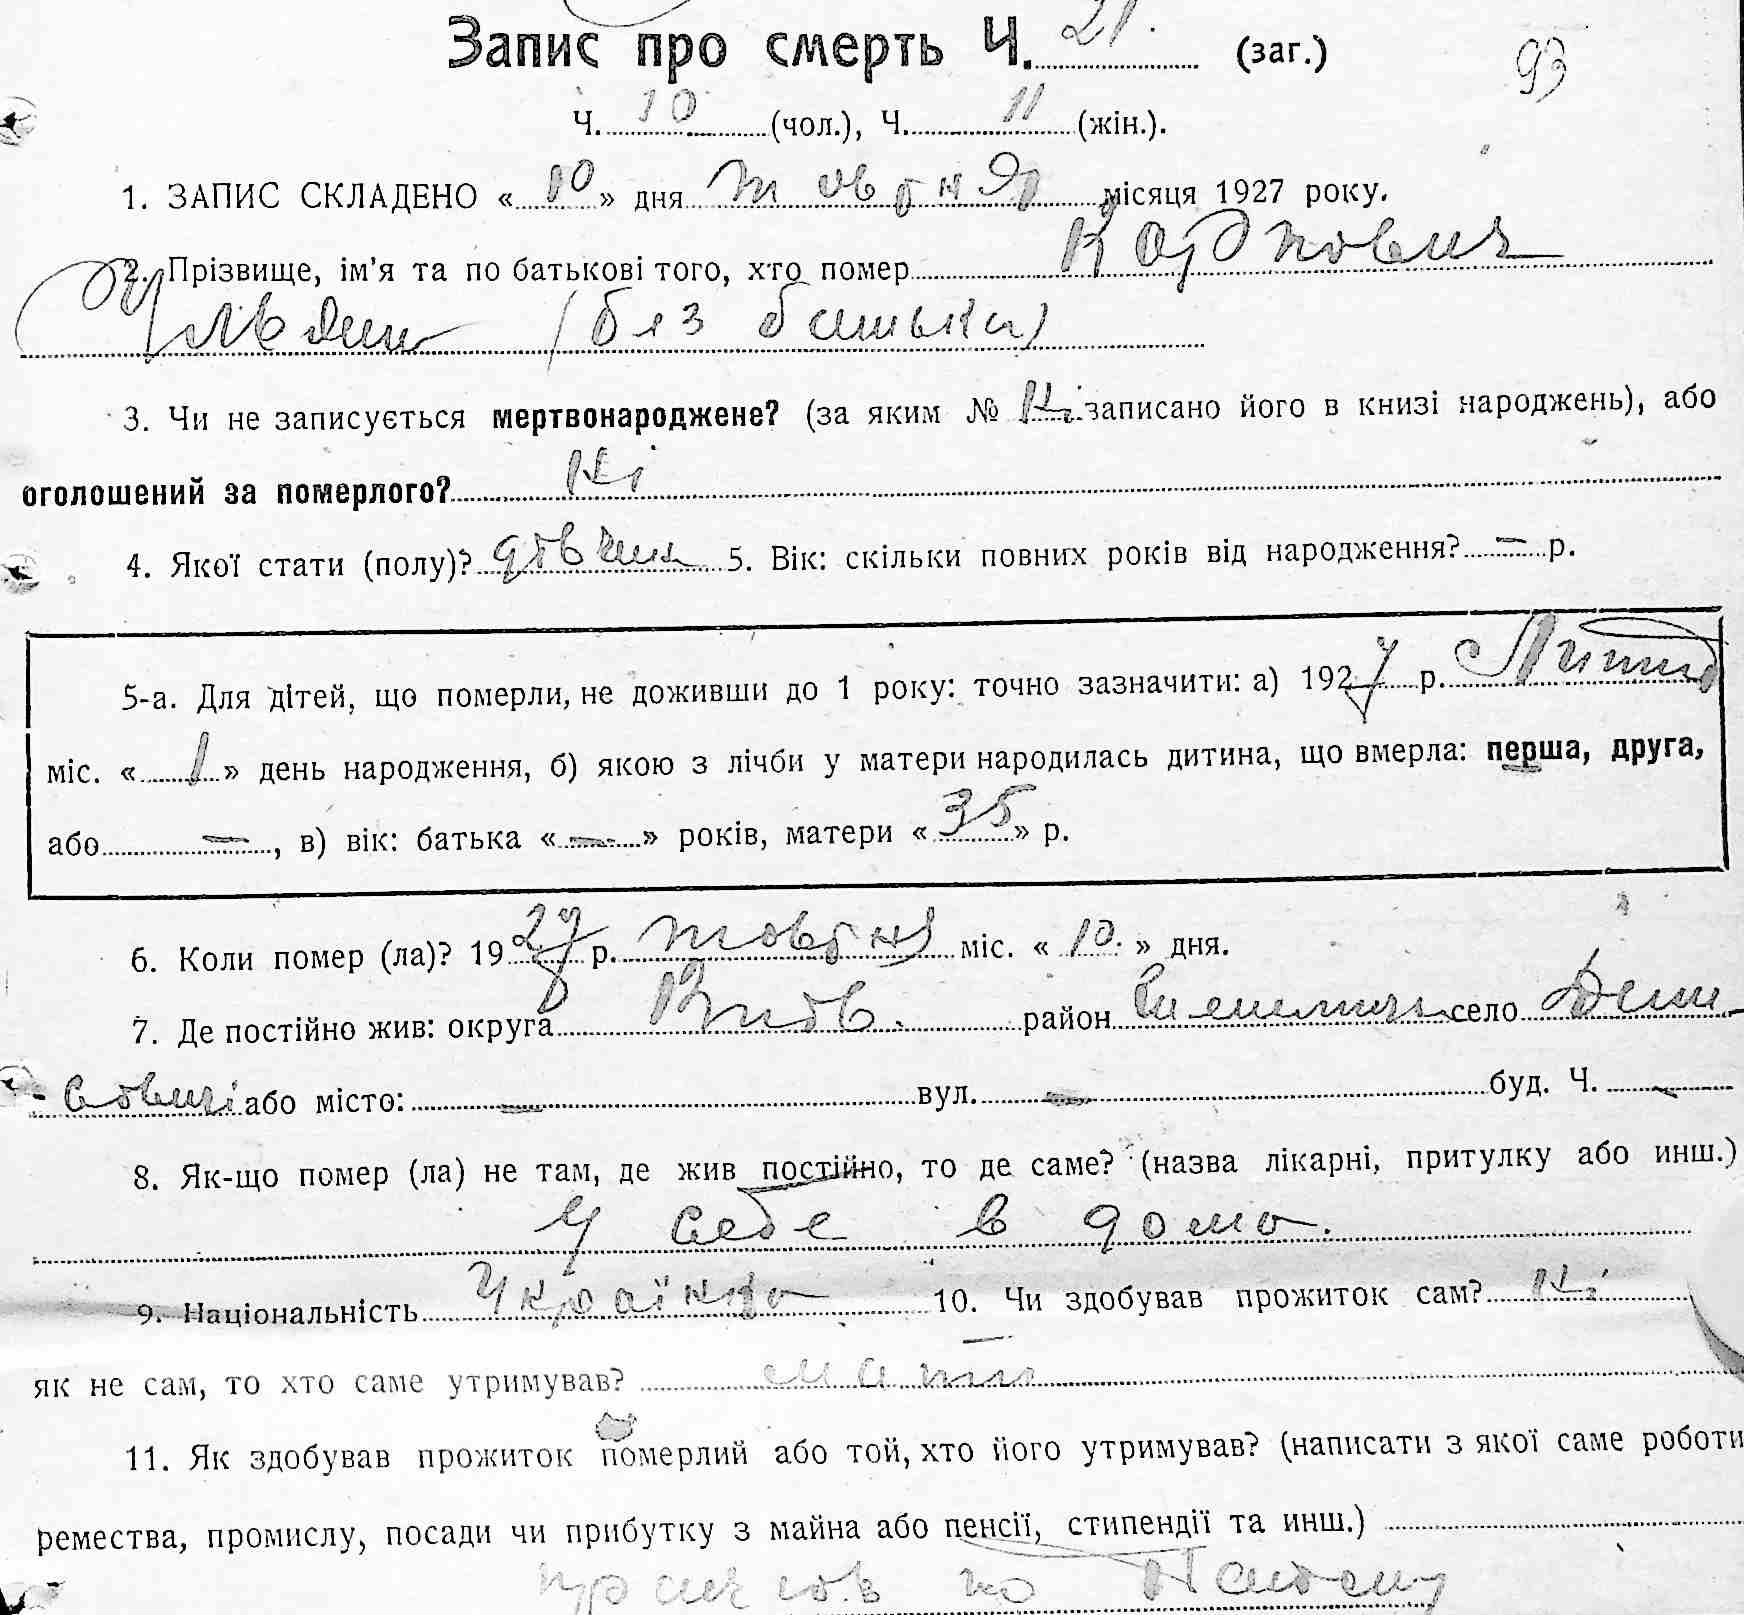 Запис про смерть Ч. 21. (заг.)
93
Ч. 10 (чол.), Ч. 11 (жін.).
1. ЗАПИС СКЛАДЕНО « 10 » дня Жовтня місяця 1927 року.
2. Прізвище, ім'я та по батькові того, хто помер Карпович
Уляна (без батька)
3. Чи не записується мертвонароджене? (за яким № Ні записано його в книзі народжень), або
оголошений за померлого? Ні
4. Якої стати (полу)? дівчина 5. Вік: скільки повних років від народження? — р.
5-а. Для дітей, що померли, не доживши до 1 року: точно зазначити: а) 1927 р.
міс. « 1 » день народження, б) якою з лічби у матери народилась дитина, що вмерла: перша, друга,
або — , в) вік: батька « — » років, матери « 35 » р.
6. Коли помер (ла)? 1927 р. жовтня міс. « 10. » дня.
7. Де постійно жив: округа район село
або місто: — вул. — буд. Ч. —
8. Як-що помер (ла) не там, де жив постійно, то де саме? (назва лікарні, притулку або инш.)
У себе в дома.
9. Національність Українка 10. Чи здобував прожиток сам? Ні
як не сам, то хто саме утримував? мати
11. Як здобував прожиток померлий або той, хто його утримував? (написати з якої саме роботи
ремества, промислу, посади чи прибутку з майна або пенсії, стипендії та инш.)
по